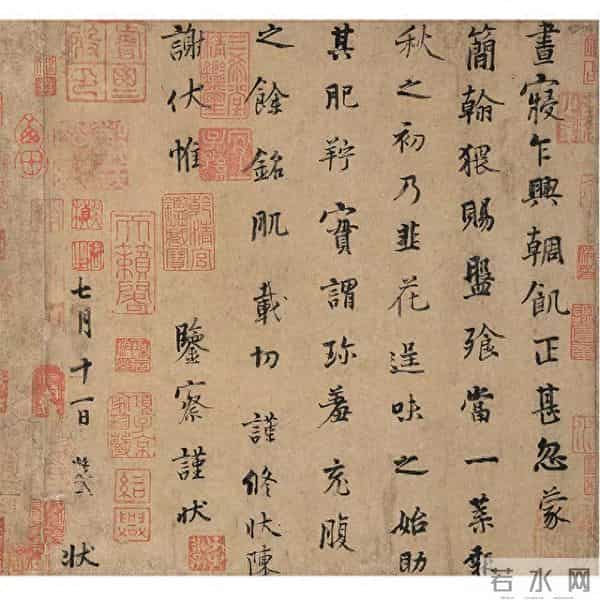 晝寢乍興輖飢正甚忽蒙
簡翰猥賜盤飧當一葉報
秋之初乃韭花逞味之始助
其肥羜實謂珍羞充腹
之餘銘肌載切謹修狀陳
謝伏惟 鑒察謹狀
七月十一日 狀
天籟閣
若水网